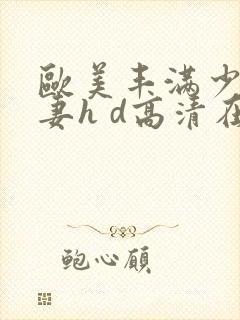 歐美丰滿少
妻hd高清在
鲍心颀